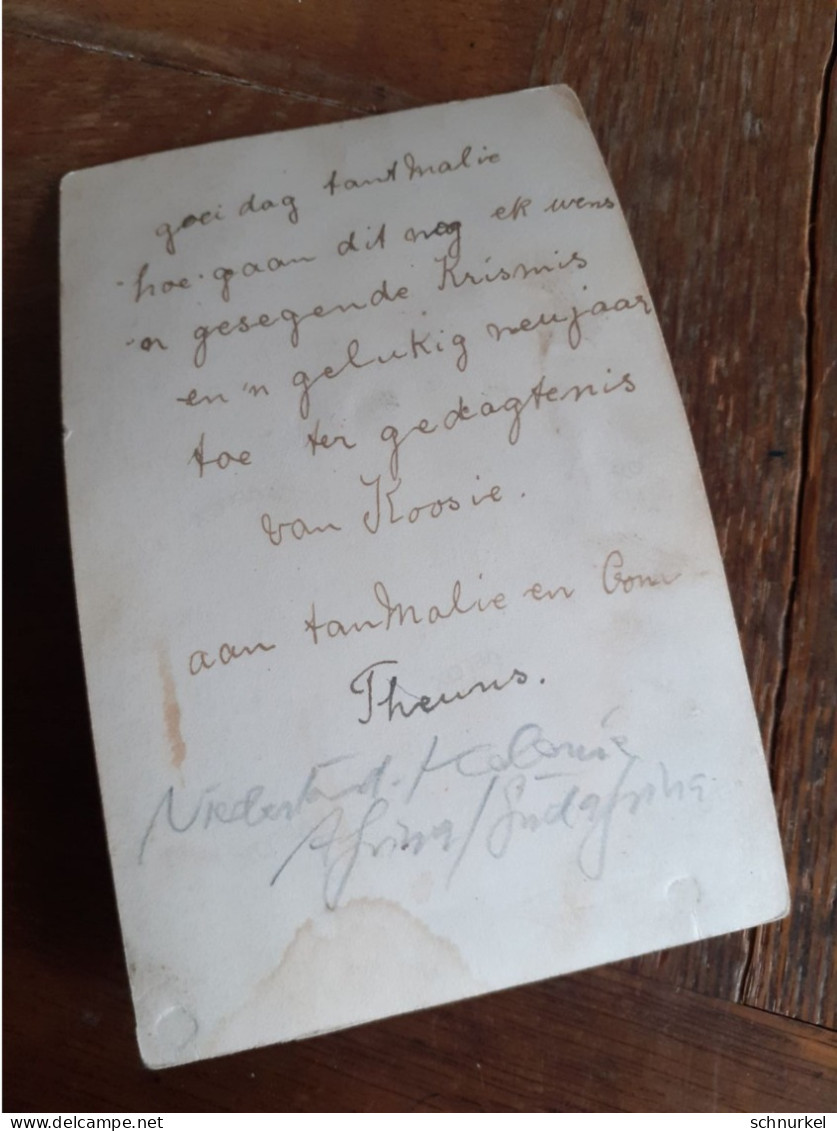 goei dag tant Malie
hoe gaan dit nog ek wens
'n gesegende Krismis
en 'n gelukig neujaar
toe ter gedagtenis
van Koosie.
aan tanMalie en Oom
Theuns.
Niederländ. Kolonie
Afrika/Südafrika
Delcampe.net
schnurkel